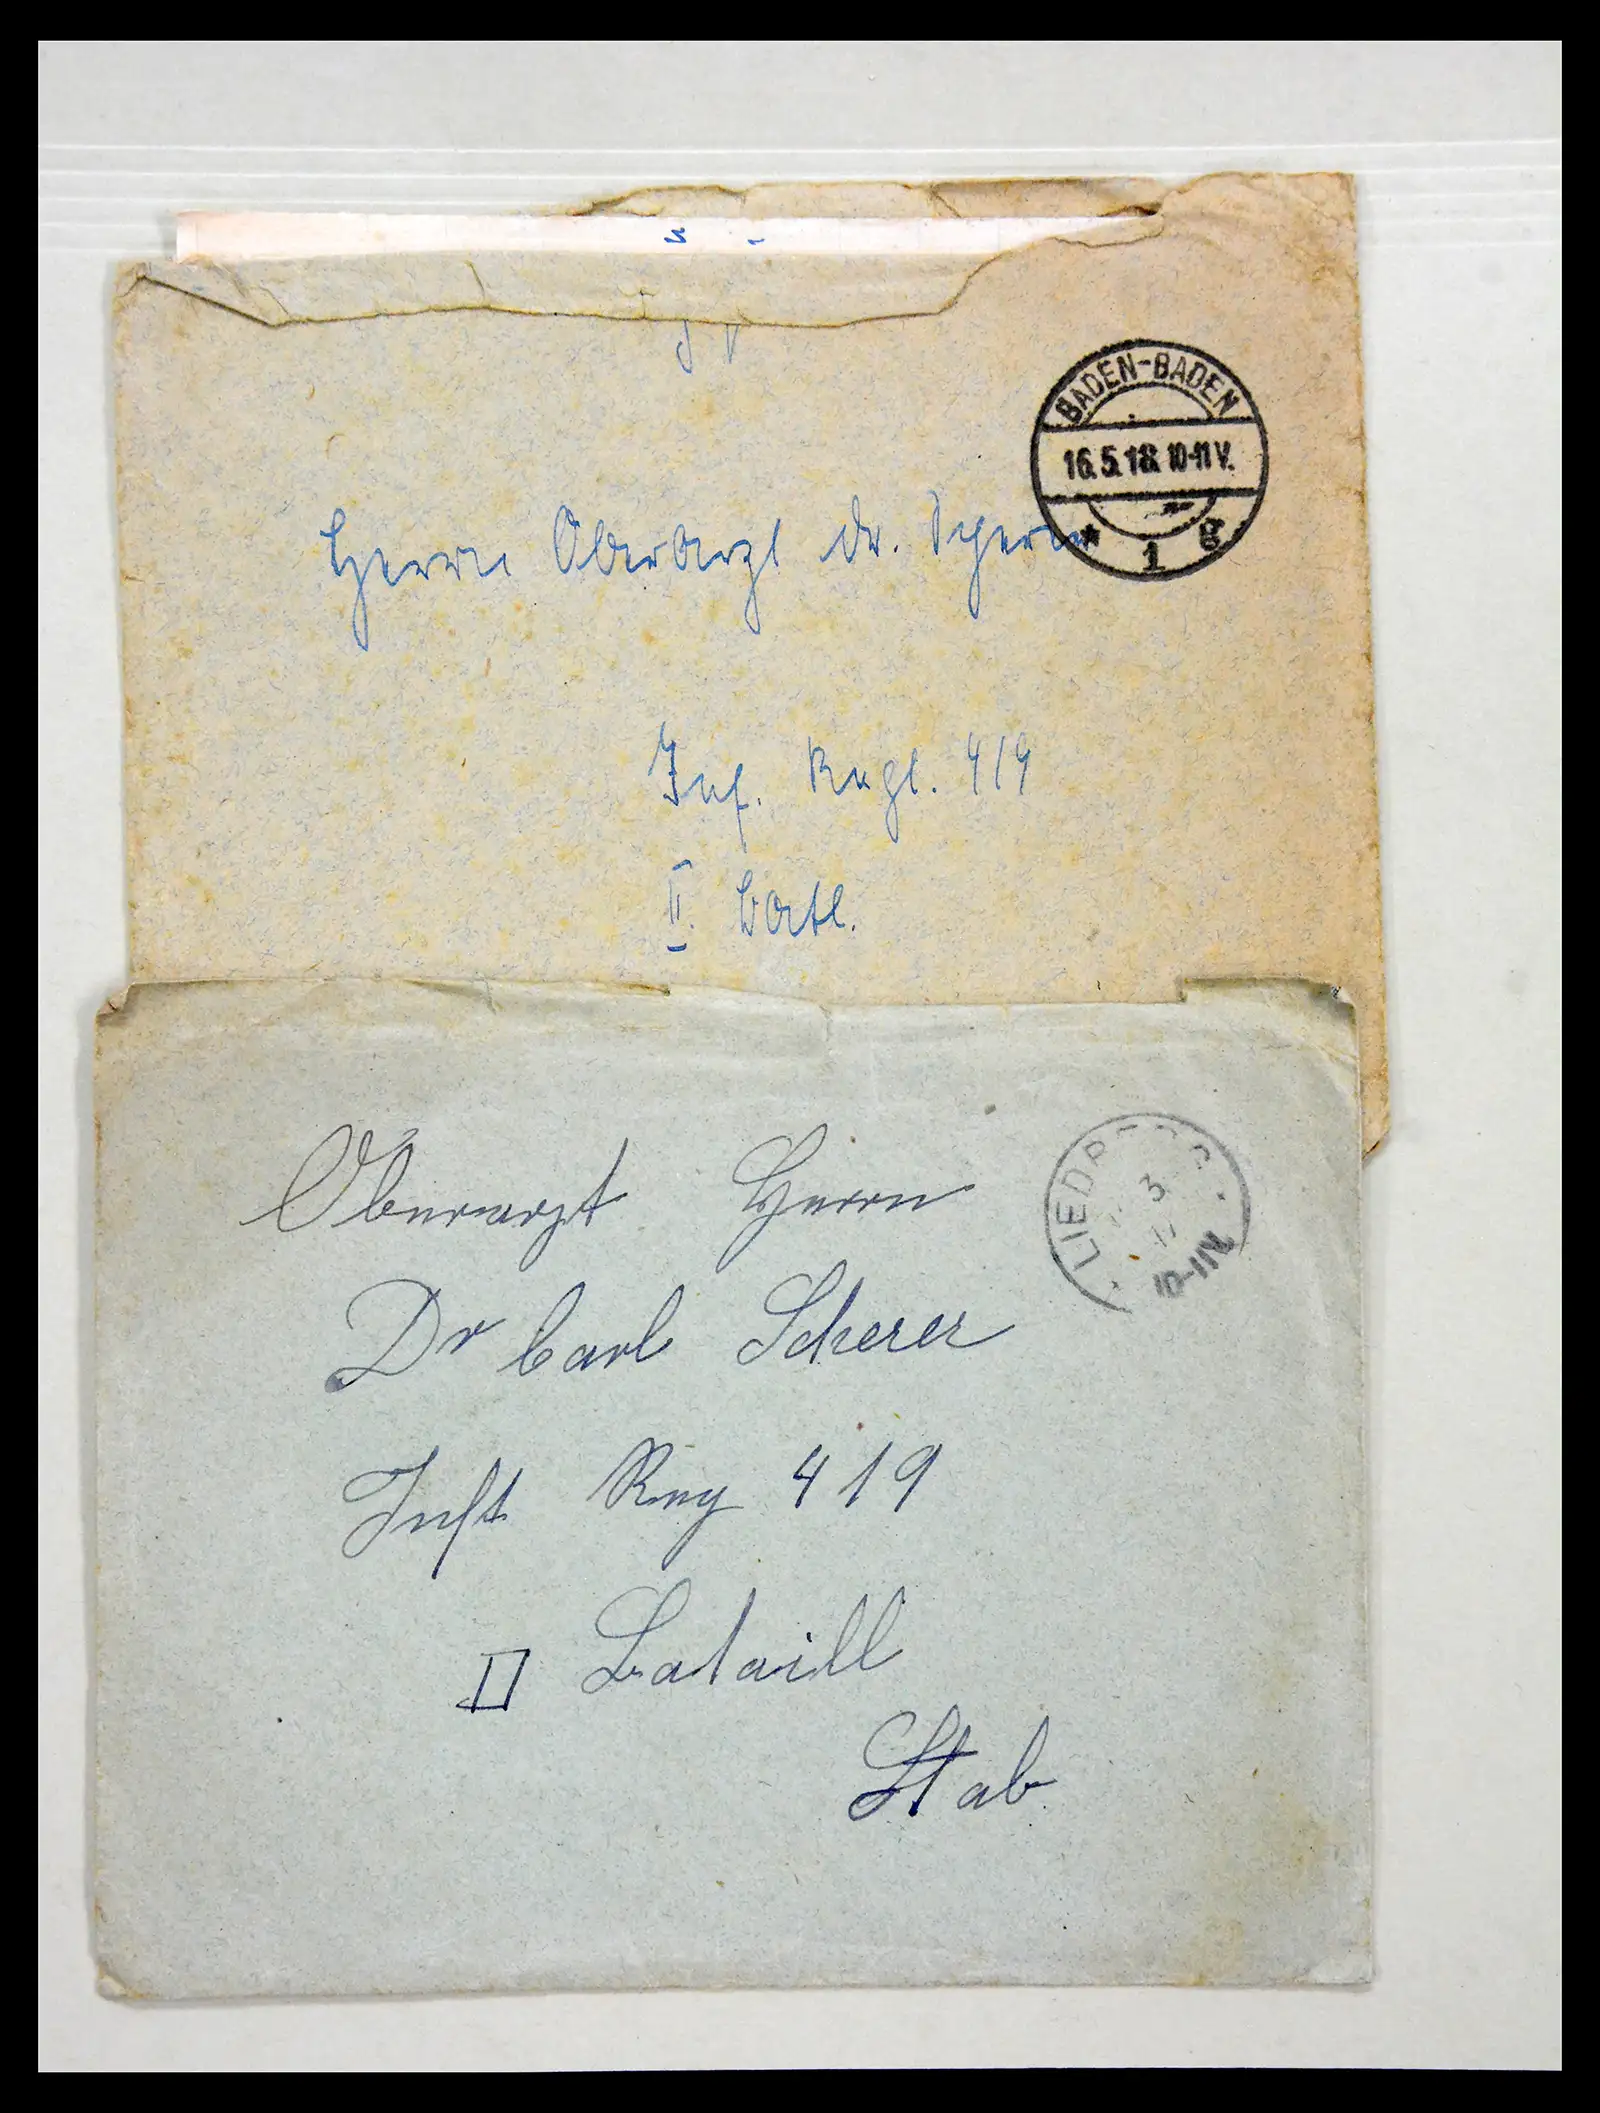 BADEN-BADEN
16.5.18. 10-11 V.
* 1 g
Herrn Oberarzt Dr. Scherer
Inf. Regt. 419
II. Batl.
Oberarzt Herrn
Dr Carl Scherer
Inft Reg 419
II Bataill
Stab
3
10-11 V.